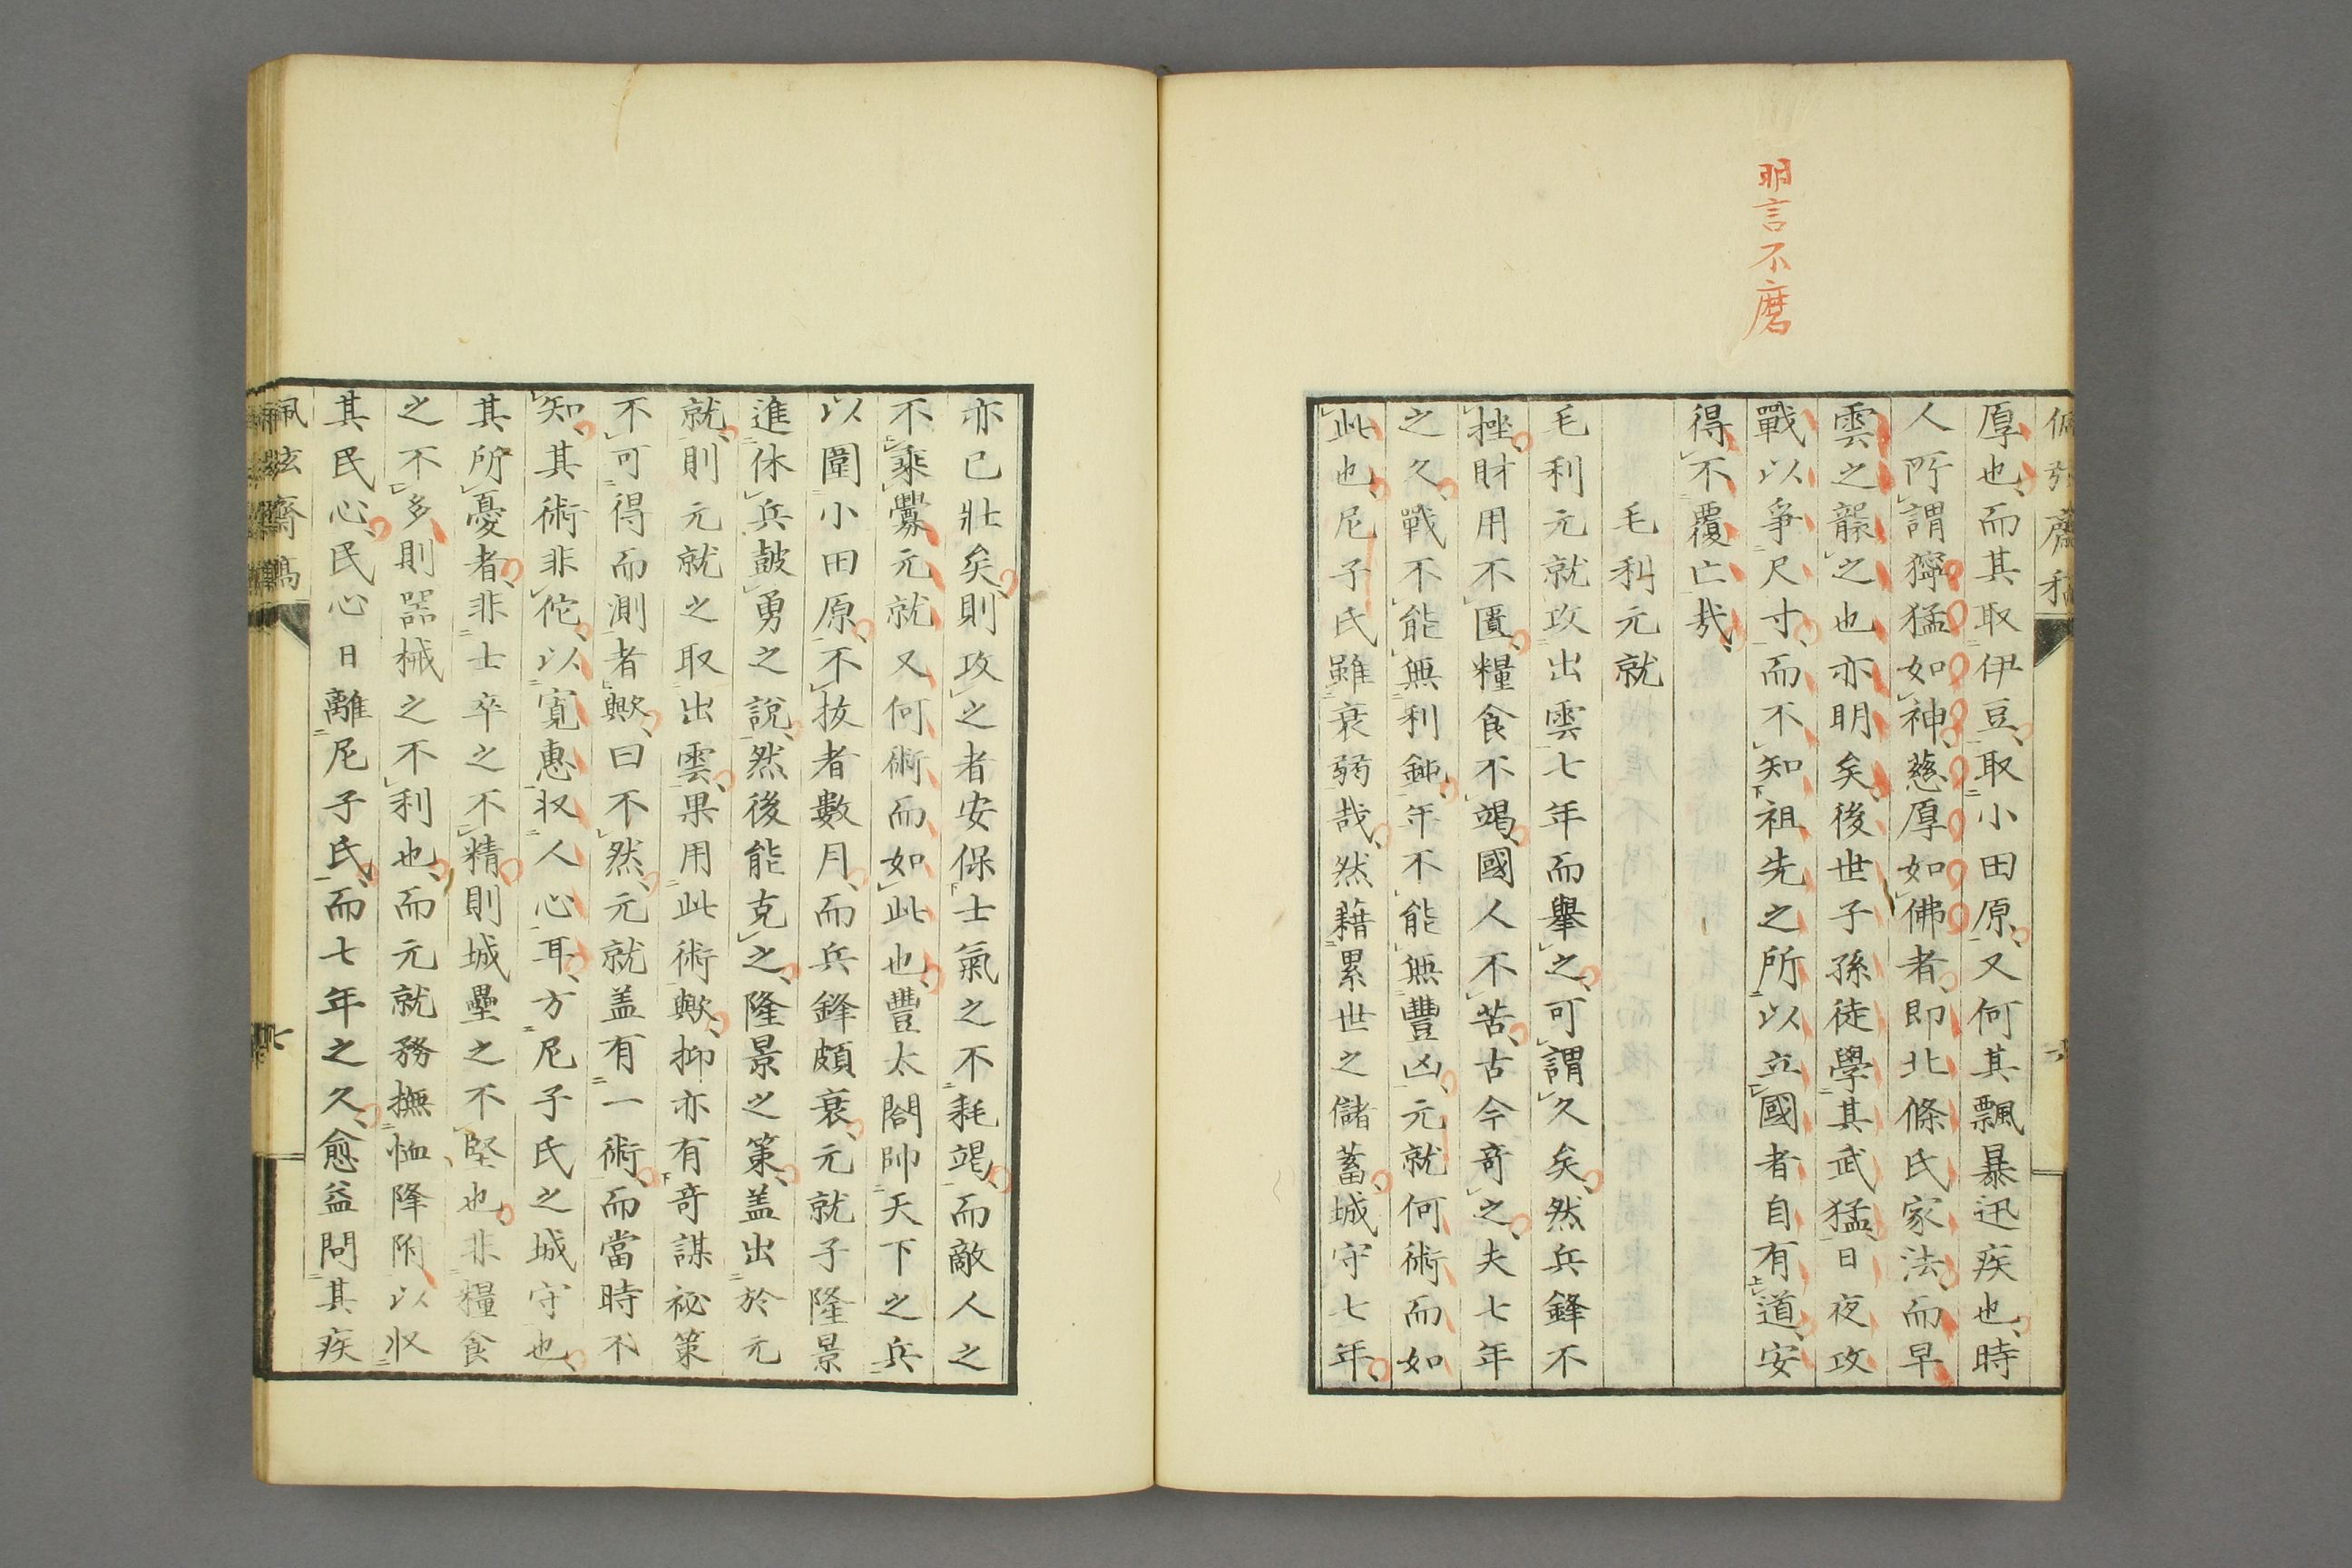 明言不磨
厚也而其取伊豆取小田原又何其飄暴迅疾也時
人所謂獰猛如神慈厚如佛者即北條氏家法而早
雲之龔之也亦明矣後世子孫徒學其武猛日夜攻
戰以爭尺寸而不知祖先之所以立國者自有道安
得不覆亡哉
毛利元就
毛利元就攻出雲七年而舉之可謂久矣然兵鋒不
挫財用不匱糧食不竭國人不苦古今奇之夫七年
之久戰不能無利鈍年不能無豐凶元就何術而如
此也尼子氏雖衰弱哉然藉累世之儲蓄城守七年
亦已壯矣則攻之者安保士氣之不耗竭而敵人之
不乘釁元就又何術而如此也豐太閤帥天下之兵
以圍小田原不拔者數月而兵鋒頗衰元就子隆景
進休兵鼓勇之說然後能克之隆景之策盖出於元
就則元就之取出雲果用此術歟抑亦有奇謀祕策
不可得而測者歟曰不然元就盖有一術而當時不
知其術非佗以寬惠収人心耳方尼子氏之城守也
其所憂者非士卒之不精則城壘之不堅也非糧食
之不多則器械之不利也而元就務撫恤降附以収
其民心民心日離尼子氏而七年之久愈益問其疾
佩弦齋稿
七